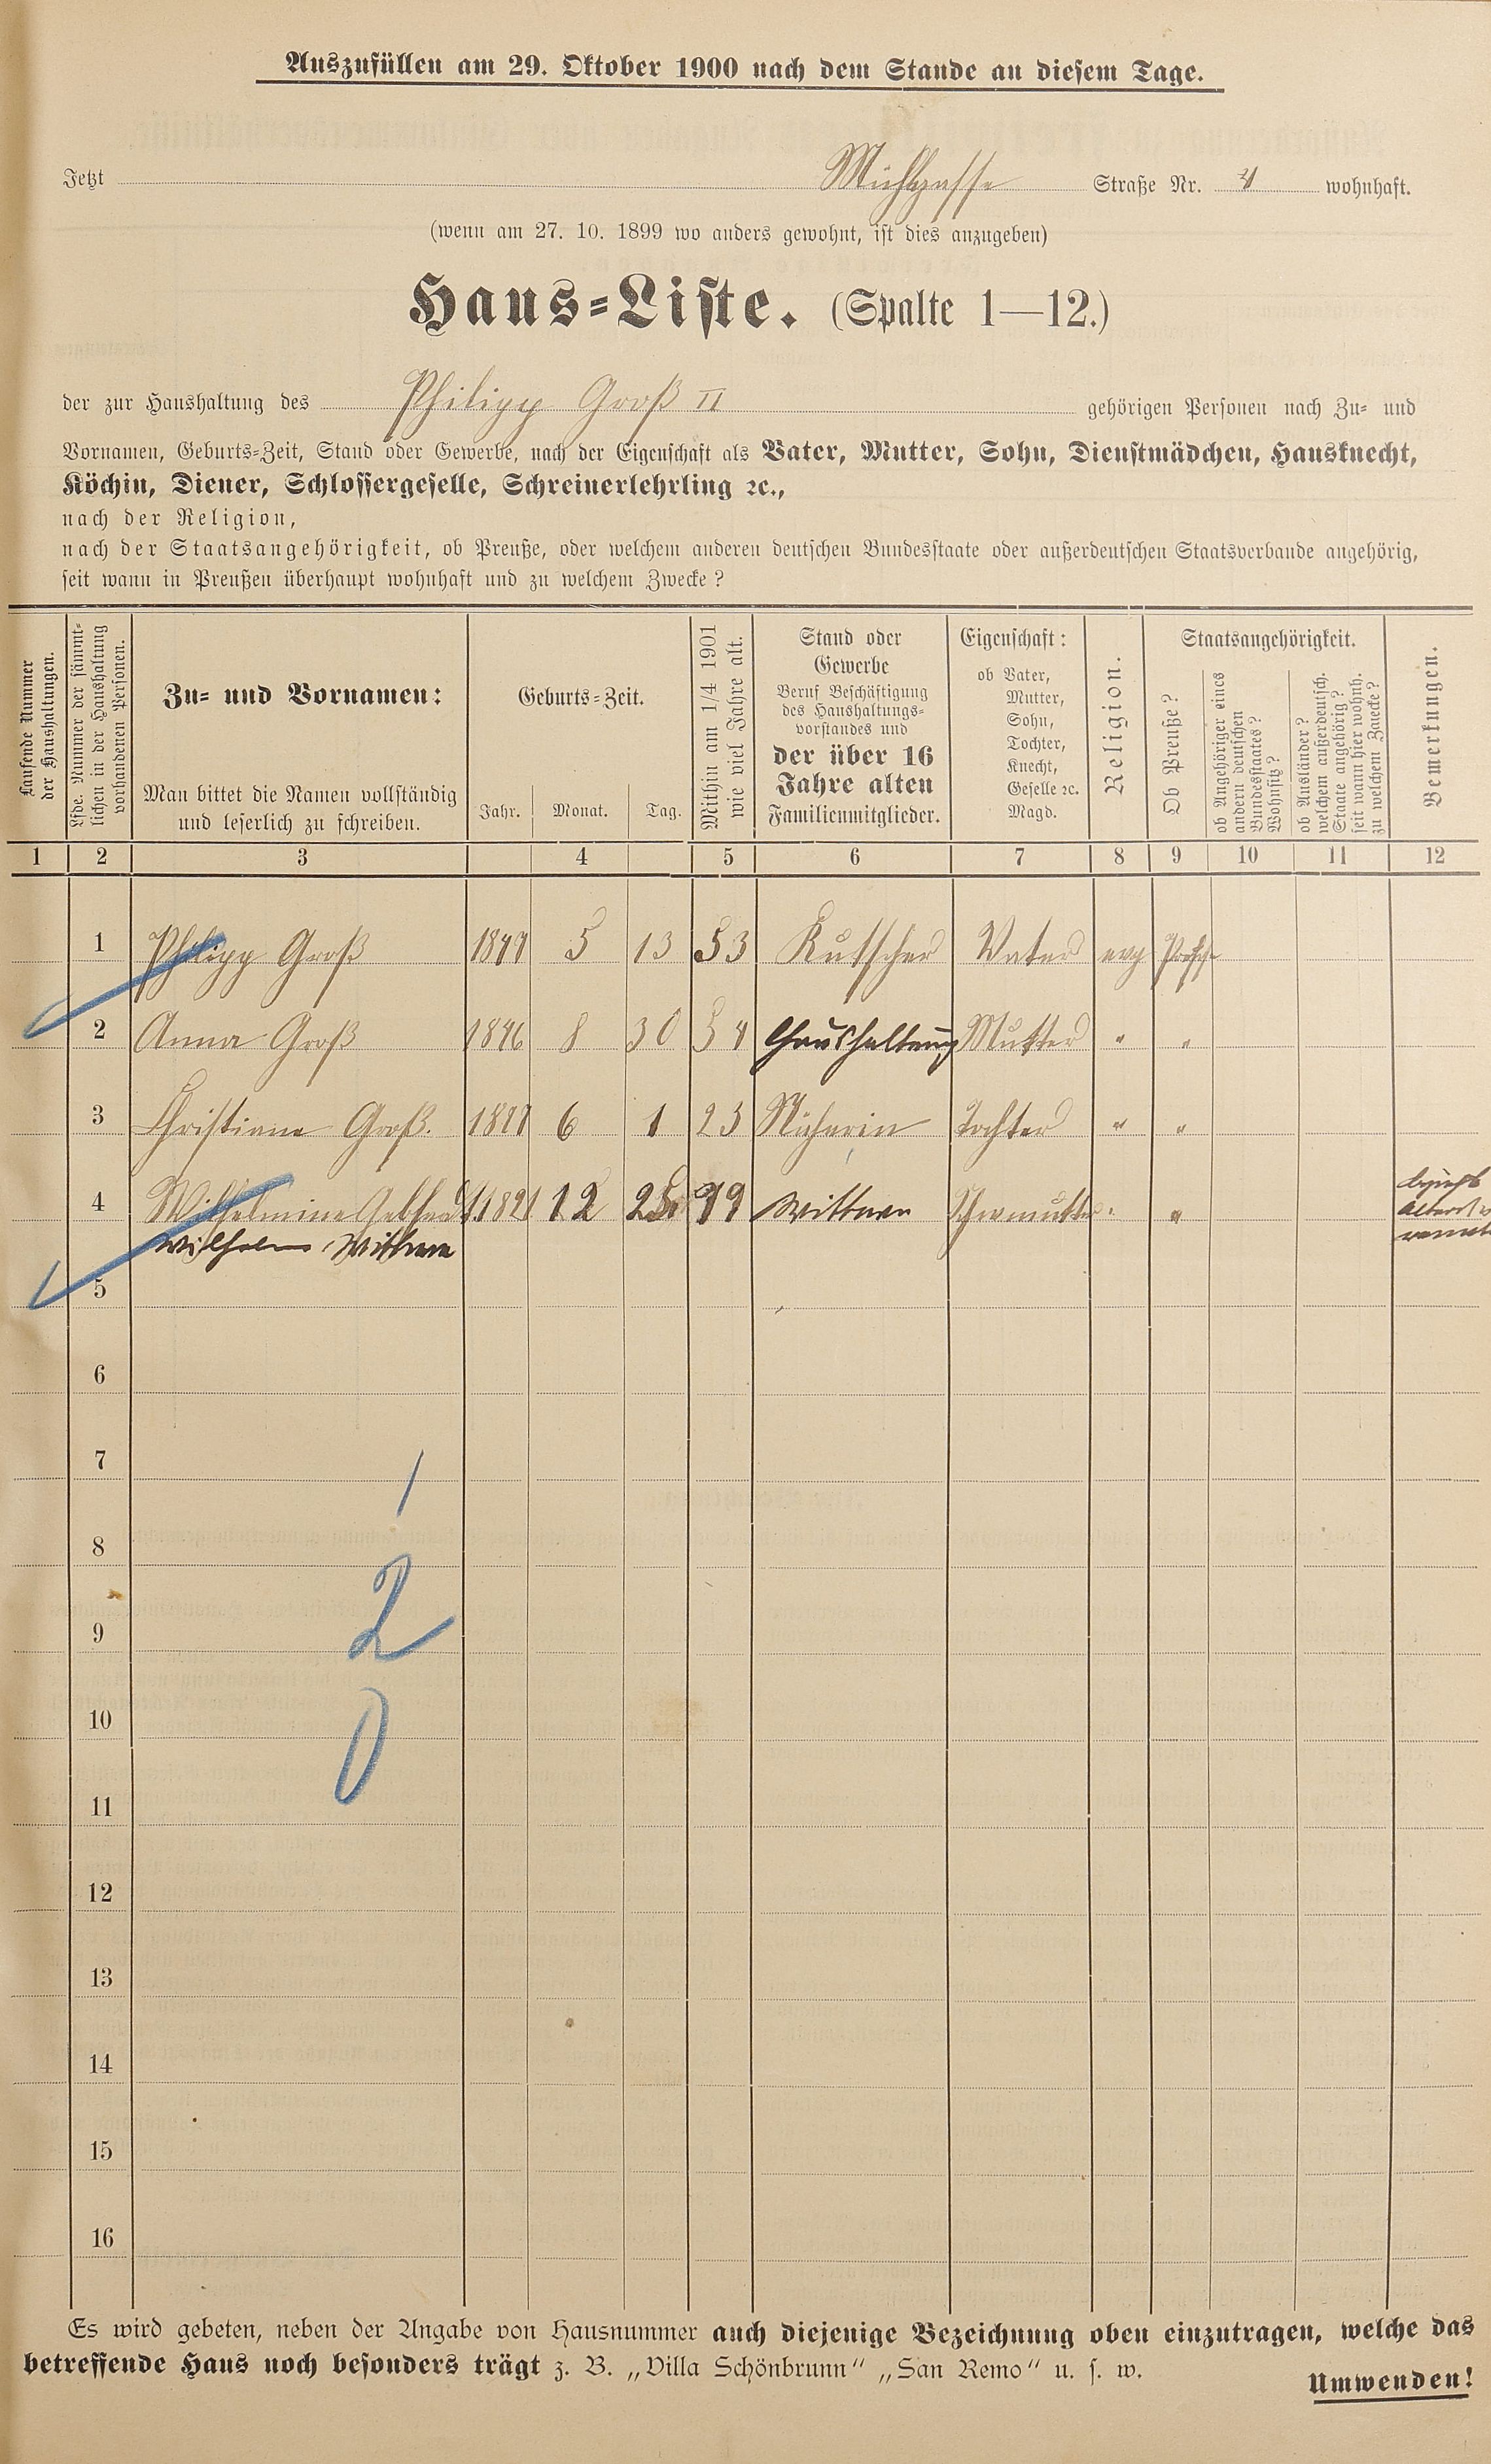 Auszufüllen am 29. Oktober 1900 nach dem Stande an diesem Tage.
Jetzt Mühlgasse Straße Nr. 4 wohnhaft.
(wenn am 27. 10. 1899 wo anders gewohnt, ist dies anzugeben)
Haus-Liste. (Spalte 1—12.)
der zur Haushaltung des Philipp Groß II gehörigen Personen nach Zu- und
Vornamen, Geburts-Zeit, Stand oder Gewerbe, nach der Eigenschaft als Vater, Mutter, Sohn, Dienstmädchen, Hausknecht,
Köchin, Diener, Schlossergeselle, Schreinerlehrling ꝛc.,
nach der Religion,
nach der Staatsangehörigkeit, ob Preuße, oder welchem anderen deutschen Bundesstaate oder außerdeutschen Staatsverbande angehörig,
seit wann in Preußen überhaupt wohnhaft und zu welchem Zwecke?
Laufende Nummer
der Haushaltungen.
Lfde. Nummer der sämmt-
lichen in der Haushaltung
vorhandenen Personen.
Zu- und Vornamen:
Man bittet die Namen vollständig
und leserlich zu schreiben.
Geburts-Zeit.
Jahr. Monat. Tag.
Mithin am 1/4 1901
wie viel Jahre alt.
Stand oder
Gewerbe
Beruf Beschäftigung
des Haushaltungs-
vorstandes und
der über 16
Jahre alten
Familienmitglieder.
Eigenschaft:
ob Vater,
Mutter,
Sohn,
Tochter,
Knecht,
Geselle ꝛc.
Magd.
Religion.
Staatsangehörigkeit.
Ob Preuße?
ob Angehöriger eines
andern deutschen
Bundesstaates?
Wohnsitz?
ob Ausländer?
welchem außerdeutsch.
Staate angehörig?
seit wann hier wohnh.
zu welchem Zwecke?
Bemerkungen.
1 2 3 4 5 6 7 8 9 10 11 12
1 Philipp Groß 1847 5 13 53 Kutscher Vater evg
2 Anna Groß 1846 8 30 54 Haushaltung Mutter " "
3 Christiane Groß. 1877 6 1 23 Näherin Tochter " "
4 Wilhelmine 1821 12 79 Wittwe "
Wilhelms Wittwe
5
6
7
1
8
2
9
10
0
11
12
13
14
15
16
Es wird gebeten, neben der Angabe von Hausnummer auch diejenige Bezeichnung oben einzutragen, welche das
betreffende Haus noch besonders trägt z. B. „Villa Schönbrunn“ „San Remo“ u. s. w.
Umwenden!